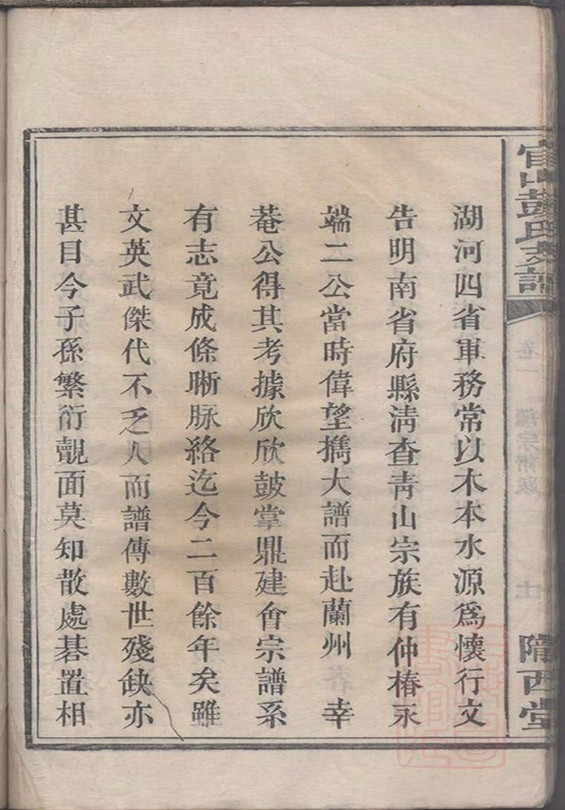 官山彭氏支譜
卷一
隴西堂
湖河四省軍務常以木本水源爲懷行文
告明南省府縣淸查靑山宗族有仲椿永
端二公當時偉望攜大譜而赴蘭州幸
菴公得其考據欣欣鼓掌鼎建會宗譜系
有志竟成條晰脉絡迄今二百餘年矣雖
文英武傑代不乏人而譜傳數世殘缺亦
甚目今子孫繁衍覿面莫知散處碁置相